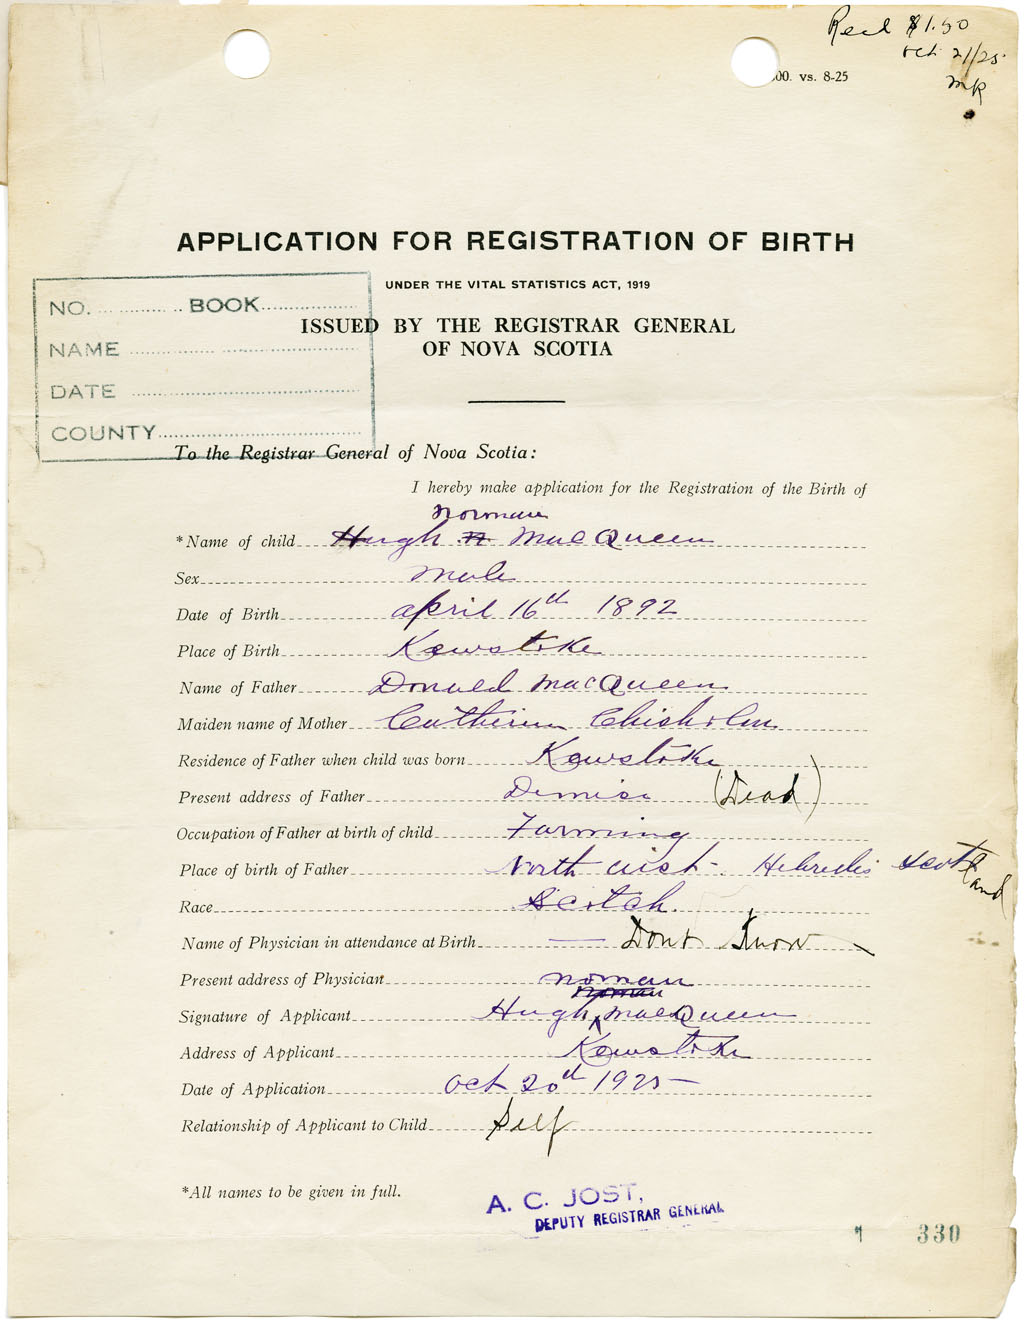 Recd $1.50
Oct 21/25.
MR
00. vs. 8-25
APPLICATION FOR REGISTRATION OF BIRTH
UNDER THE VITAL STATISTICS ACT, 1919
ISSUED BY THE REGISTRAR GENERAL
OF NOVA SCOTIA
NO. BOOK
NAME
DATE
COUNTY
To the Registrar General of Nova Scotia:
I hereby make application for the Registration of the Birth of
Norman
*Name of child Hugh N MacQueen
Sex Male
Date of Birth April 16th 1892
Place of Birth Kewstoke
Name of Father Donald MacQueen
Maiden name of Mother Catherine Chisholm
Residence of Father when child was born Kewstoke
Present address of Father Demise (Dead)
Occupation of Father at birth of child Farming
Place of birth of Father North Uist - Hebredis Scotland
Race Scotch.
Name of Physician in attendance at Birth — Dont Know
Present address of Physician
Noman
Noman
Signature of Applicant Hugh MacQueen
Address of Applicant Kewstoke
Date of Application Oct 20th 1925
Relationship of Applicant to Child Self
*All names to be given in full.
A. C. JOST,
DEPUTY REGISTRAR GENERAL
1 330